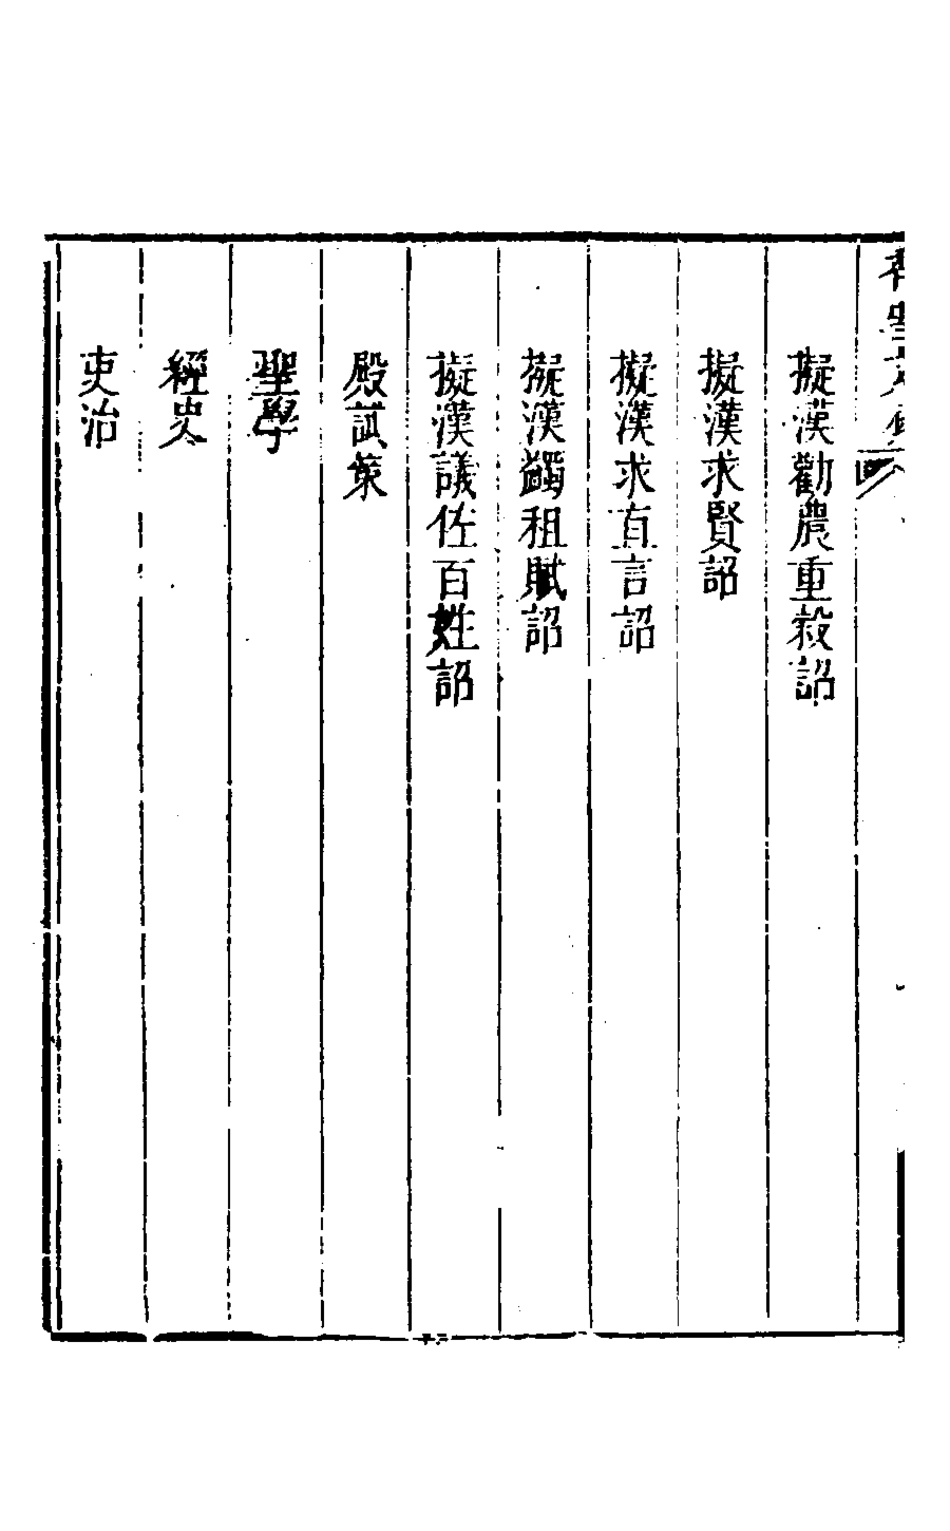 擬漢勸農重穀詔
擬漢求賢詔
擬漢求直言詔
擬漢蠲租賦詔
擬漢議佐百姓詔
殿試策
聖學
經史
吏治